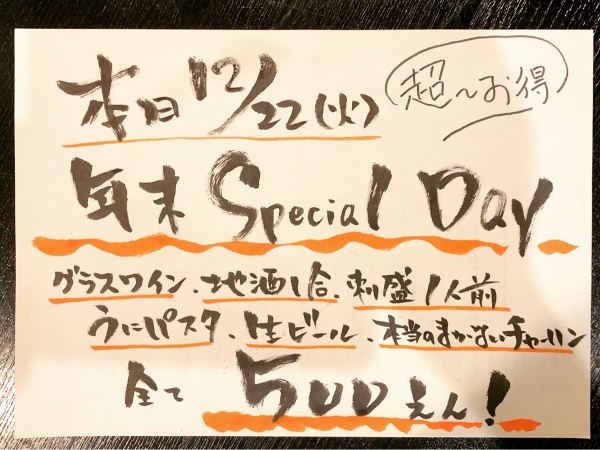 本日 12/22(火)
超〜お得
年末 Special Day
グラスワイン、地酒1合、刺盛1人前
うにパスタ、生ビール、本当のまかないチャーハン
全て 500えん!